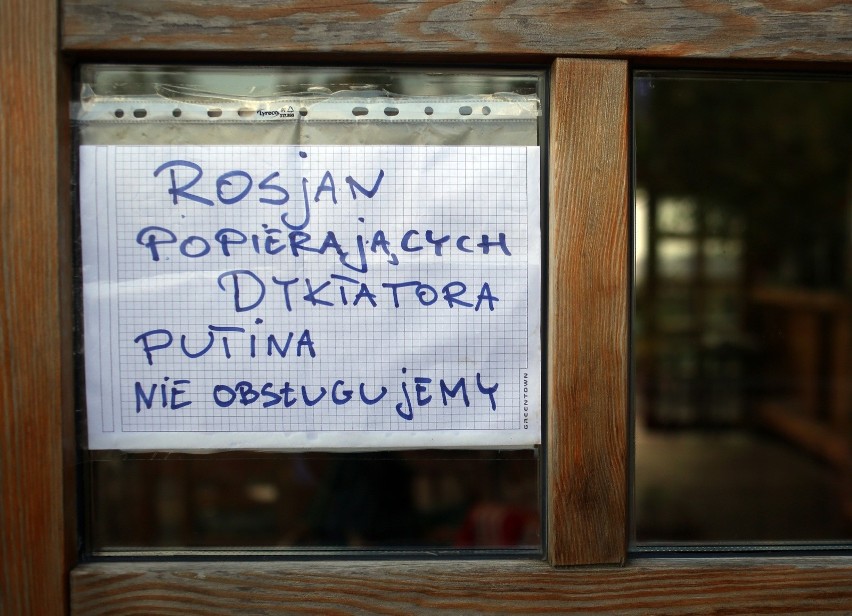 ROSJAN
POPIERAJĄCYCH
DYKTATORA
PUTINA
NIE OBSŁUGUJEMY
GREENTOWN